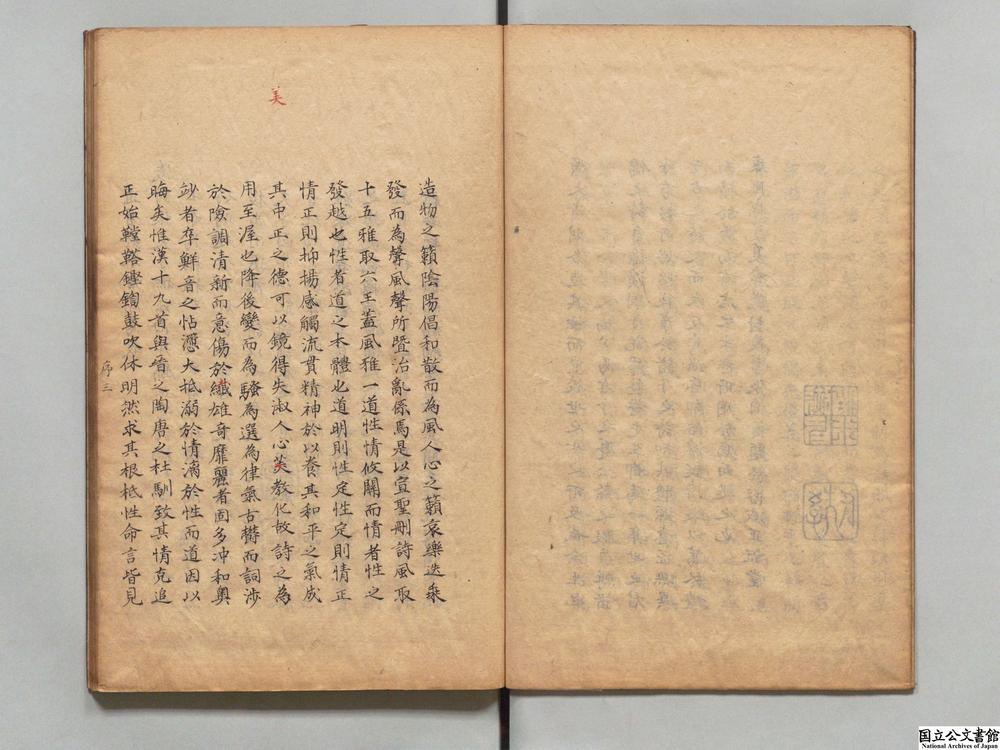 造物之籟陰陽倡和散而為風人心之籟哀樂迭乘
發而為聲風聲所暨治亂係焉是以宣聖刪詩風取
十五雅取六王蓋風雅一道性情攸關而情者性之
發越也性者道之本體也道明則性定性定則情正
情正則抑揚感觸流貫精神於以養其和平之氣成
其中正之德可以鏡得失淑人心美教化故詩之為
用至渥也降後變而為騷為選為律氣古欝而詞涉
於險調清新而意傷於纖雄奇靡麗者固多沖和奧
妙者卒鮮音之怗懘大抵溺於情漓於性而道因以
晦矣惟漢十九首與晉之陶唐之杜馴致其情克追
正始鞺鞳鏗鍧鼓吹休明然求其根柢性命言皆見
序三
美
国立公文書館
National Archives of Japan